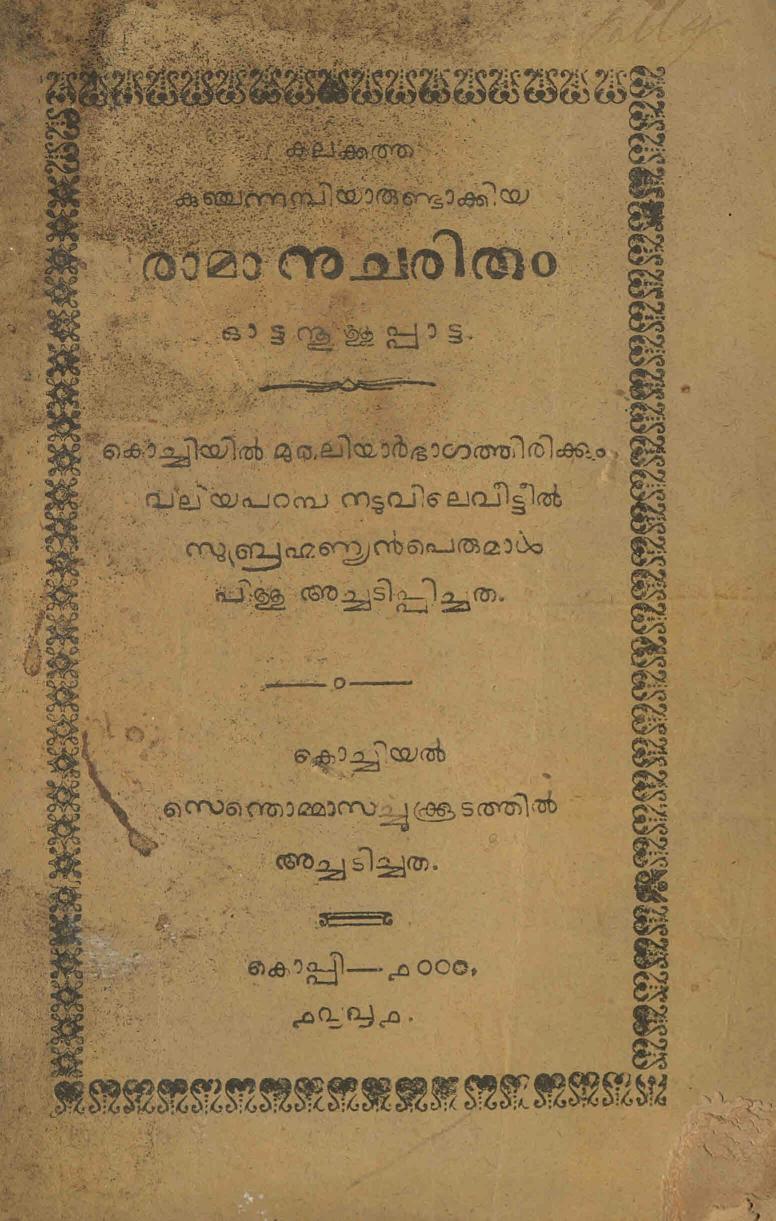 കലക്കത്ത
കുഞ്ചന്നമ്പിയാരുണ്ടാക്കിയ
രാമാനുചരിതം
ഓട്ടന്തുള്ളപ്പാട്ട.
കൊച്ചിയിൽ മുതലിയാർഭാഗത്തിരിക്കും
വലിയപറമ്പ നടുവിലെവീട്ടീൽ
സുബ്രഹ്മണ്യൻപെരുമാൾ
പിള്ള അച്ചടിപ്പിച്ചത.
കൊച്ചിയൽ
സെന്തൊമ്മാസച്ചുക്കൂടത്തിൽ
അച്ചടിച്ചത.
കൊപ്പി—൧൦൦൦.